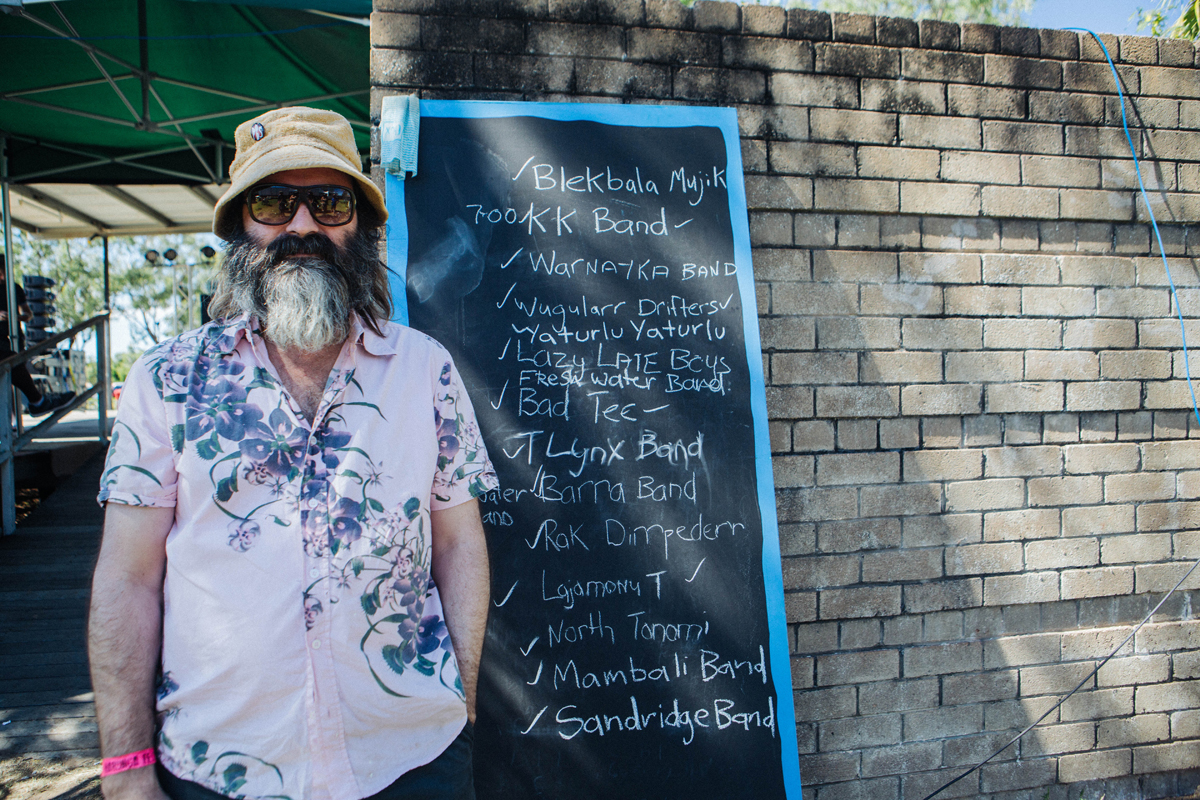 ✓ Blekbala Mujik
7:00 KK Band ✓
✓ WARNAYKA BAND
✓ Wugularr Drifters ✓
Yaturlu Yaturlu
✓ Lazy LATE Boys
Fresh water Band
✓ Bad Tee
✓ T Lynx Band
✓ Barra Band
✓ Rak Dimpederr
✓ Lajamonu T ✓
✓ North Tanami
✓ Mambali Band
✓ Sandridge Band